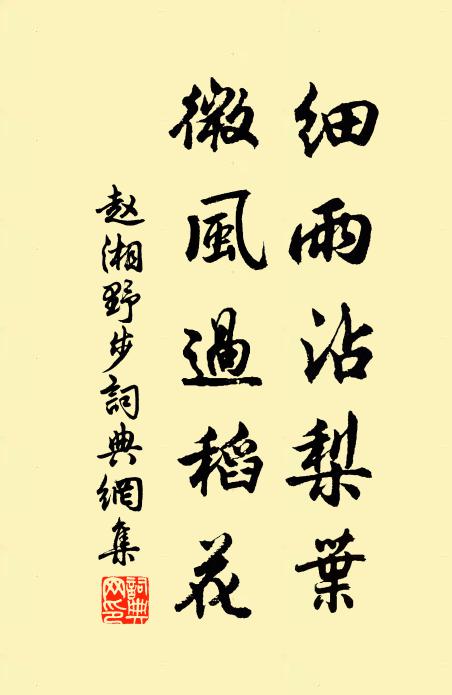 細雨沾梨葉
微風過稻花
趙湘野步詞典網集
詞典網印